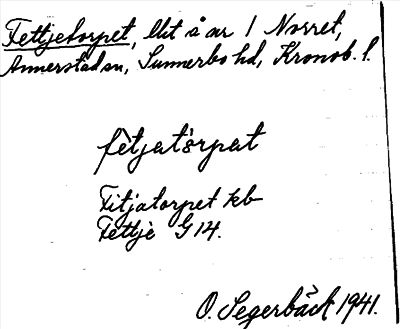 Fettjetorpet, lht å av 1 Norret,
Annerstad sn, Sunnerbo hd, Kronob. l.
fètjatòrpat
Fitjatorpet kb
Fettje G 14.
O. Segerbäck 1941.